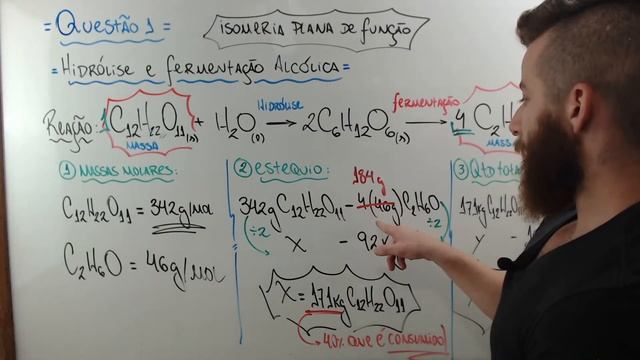 = Questão 1 =
isomeria plana de função
= Hidrólise e fermentação alcólica =
Hidrólise
fermentação
Reação: 1 C12H22O11(s) + H2O(l) → 2C6H12O6(s) → 4 C2H
massa
massa
① massas molares:
C12H22O11 = 342g/mol
C2H6O = 46g/mol
② estequio:
184g
342g C12H22O11 - 4(46g) C2H6O
÷2
÷2
X - 92
X = 171kg C12H22O11
40% que é consumido!
③ Qto tota
171kg C12H22O11
y -